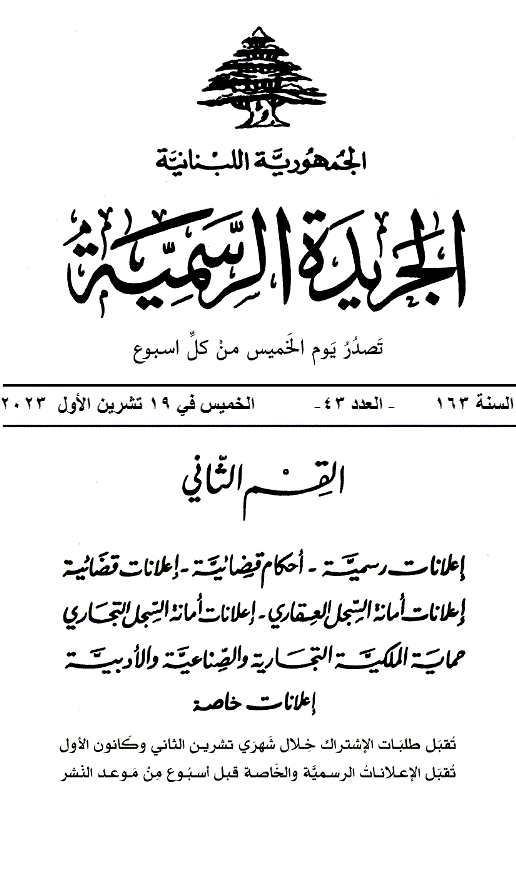 الجمهورية اللبنانية
الجريدة الرسمية
تَصدُرُ يَوم الخَميس منْ كلِّ اسبوع
السنة ١٦٣ - العدد ٤٣- الخميس في ١٩ تشرين الأول ٢٠٢٣
القِسْم الثّاني
إعلانات رسميَّة - أحكام قضائيَّة - إعلانات قضائية
إعلانات أمانة السِّجل العقاري - إعلانات أمانة السِّجل التجاري
حماية الملكيَّة التجارية والصِّناعيَّة والأدبيَّة
إعلانات خاصة
تُقبَل طلبَات الإشتراك خلال شَهرَي تشرين الثاني وكَانون الأول
تُقبَل الإعلاناتُ الرسميَّة والخَاصة قبل أسبُوع مِنْ مَوعد النَشر